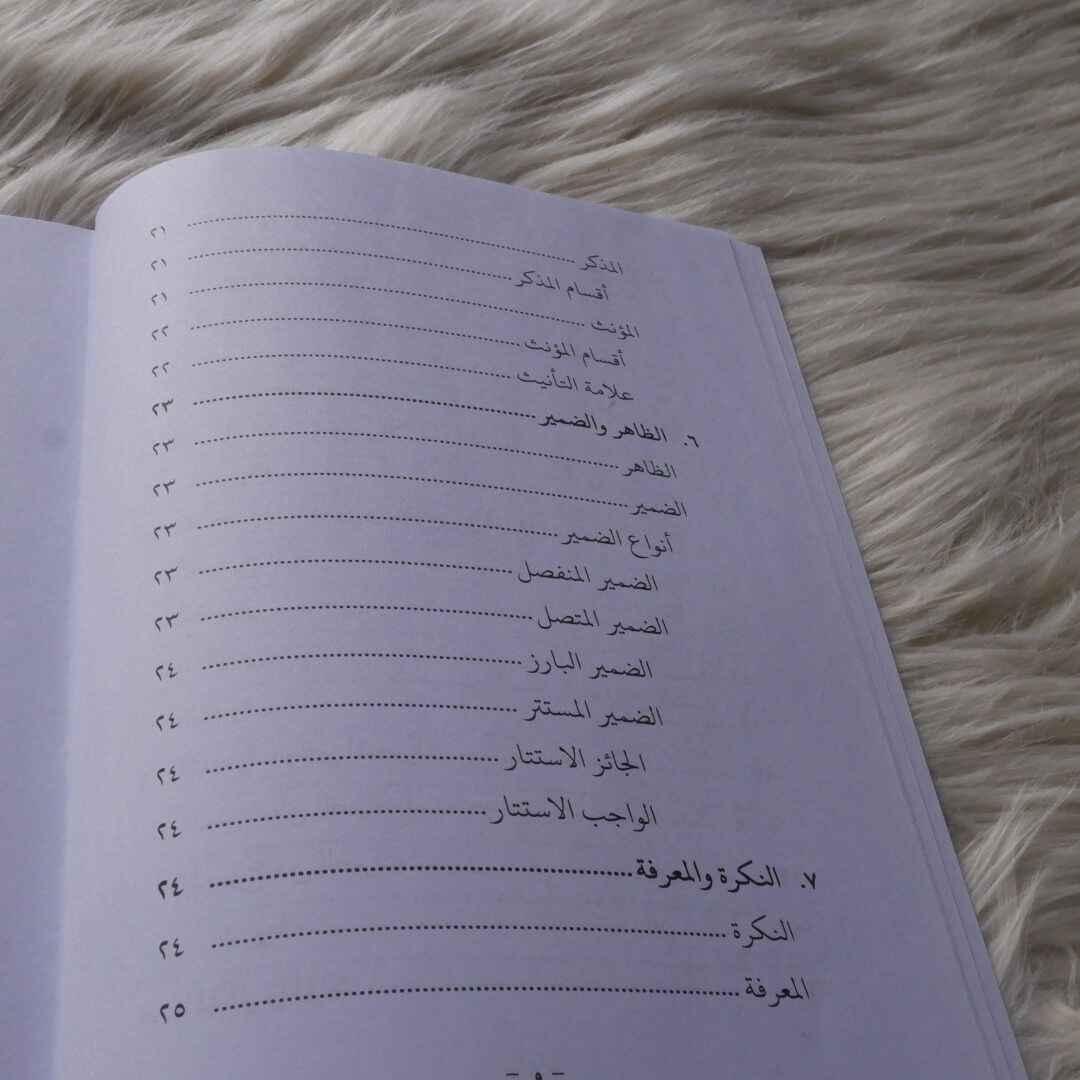 المذكر ........ ٢١
أقسام المذكر ........ ٢١
المؤنث ........ ٢١
أقسام المؤنث ........ ٢٢
علامة التأنيث ........ ٢٢
٦. الظاهر والضمير ........ ٢٣
الظاهر ........ ٢٣
الضمير ........ ٢٣
أنواع الضمير ........ ٢٣
الضمير المنفصل ........ ٢٣
الضمير المتصل ........ ٢٣
الضمير البارز ........ ٢٤
الضمير المستتر ........ ٢٤
الجائز الاستتار ........ ٢٤
الواجب الاستتار ........ ٢٤
٧. النكرة والمعرفة ........ ٢٤
النكرة ........ ٢٤
المعرفة ........ ٢٥
– ٩ –